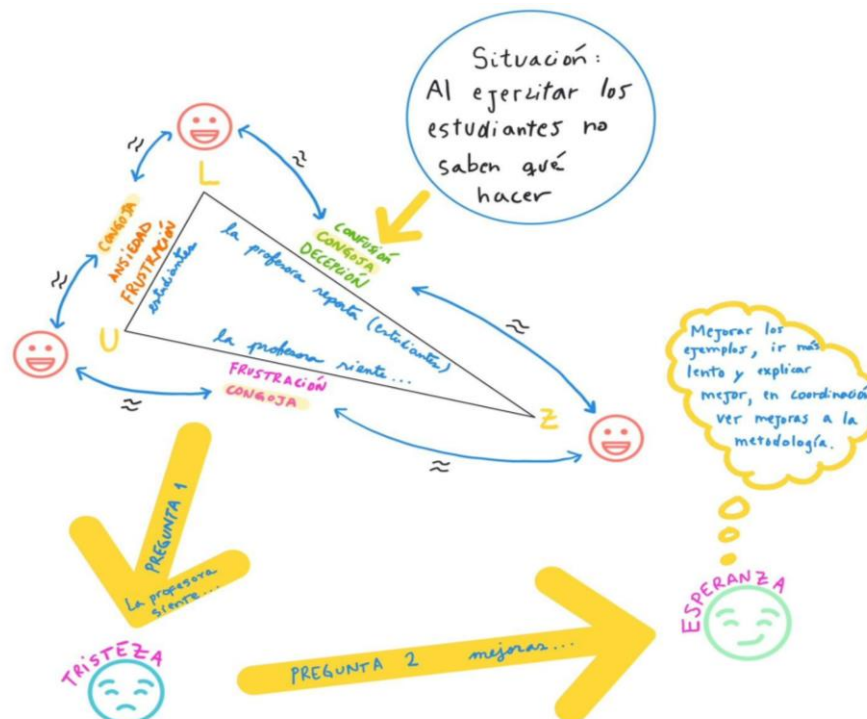 Situación:
Al ejercitar los
estudiantes no
saben qué
hacer
≈
≈
L
CONGOJA
ANSIEDAD
FRUSTRACIÓN
estudiantes
CONFUSIÓN
CONGOJA
DECEPCIÓN
la profesora reporta (estudiantes)
≈
≈
U
la profesora siente...
FRUSTRACIÓN
CONGOJA
≈
≈
Z
Mejorar los
ejemplos, ir más
lento y explicar
mejor, en coordinación
ver mejoras a la
metodología.
PREGUNTA 1
La profesora
siente...
TRISTEZA
PREGUNTA 2 mejoras...
ESPERANZA